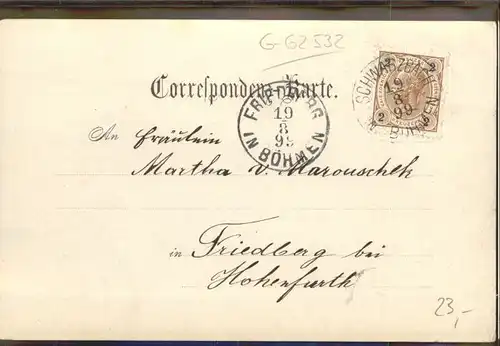 G-G2532
Correspondenz-Karte.
SCHWARZBACH
19
8
99
IN BÖHMEN
2 2
FRIEDBERG
19
8
99
IN BÖHMEN
An Fräulein
Martha v. Marouschek
in Friedberg bei
Hohenfurth
23,-